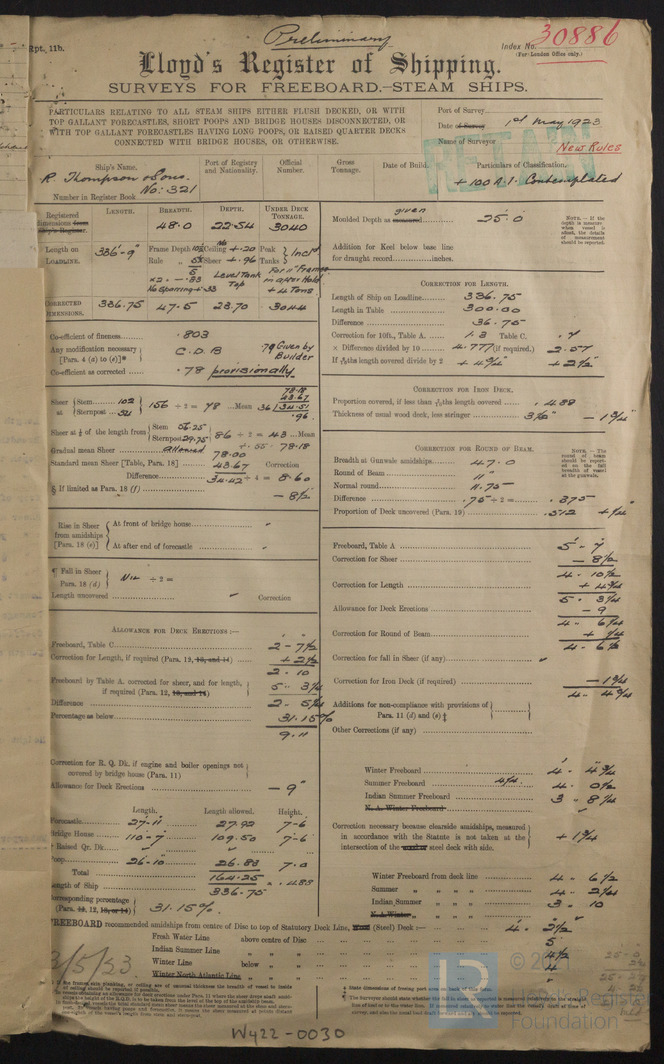 Rpt. 11b.
Preliminary
Index No. 30886
(For London Office only.)
Lloyd's Register of Shipping.
SURVEYS FOR FREEBOARD.—STEAM SHIPS.
PARTICULARS RELATING TO ALL STEAM SHIPS EITHER FLUSH DECKED, OR WITH
TOP GALLANT FORECASTLES, SHORT POOPS AND BRIDGE HOUSES DISCONNECTED, OR
WITH TOP GALLANT FORECASTLES HAVING LONG POOPS, OR RAISED QUARTER DECKS
CONNECTED WITH BRIDGE HOUSES, OR OTHERWISE.
Port of Survey
Date of Survey 1st May 1923
Name of Surveyor
New Rules
RETAIN
Ship's Name.
Port of Registry and Nationality.
Official Number.
Gross Tonnage.
Date of Build.
Particulars of Classification.
R. Thompson & Sons.
No: 321
+ 100 A.1. Contemplated
Number in Register Book
LENGTH. BREADTH. DEPTH. UNDER DECK TONNAGE.
Registered dimensions from Ship's Register.
48.0 22.54 3040
Length on LOADLINE.
336'-9"
Frame Depth
Rule
Ceiling + .20
Sheer + .96
Peak Tanks } Incld
Level Tank Top
No Sparring + .33
CORRECTED DIMENSIONS.
336.75 47.5 23.70 3044
Moulded Depth as measured given 25.0
NOTE.—If the depth is measured when vessel is afloat, the details of measurement should be reported.
Addition for Keel below base line
for draught record inches.
CORRECTION FOR LENGTH.
Length of Ship on Loadline 336.75
Length in Table 300.00
Difference 36.75
Correction for 10ft., Table A. 1.3 Table C. .7
× Difference divided by 10 4.777 (if required.) 2.57
If 6/10ths length covered divide by 2 + 4¾" + 2½"
Co-efficient of fineness .803
Any modification necessary [Para. 4 (a) to (e)]* C.D.B .79 Given by Builder
Co-efficient as corrected .78 provisionally
CORRECTION FOR IRON DECK.
Proportion covered, if less than 7/10ths length covered .488
Thickness of usual wood deck, less stringer 3½" - 1¾"
Sheer at { Stem 102
Sternpost 54 } 156 ÷ 2 = 78 ...Mean
78.18
43.67
36 | 34.51
.96
Sheer at ⅛ of the length from { Stem 56.25
Sternpost 29.75 } 86 ÷ 2 = 43 ...Mean
÷ .55 = 78.18
Gradual mean Sheer allowed 78.00
Standard mean Sheer [Table, Para. 18] 43.67 Correction
Difference 34.42 ÷ 4 = 8.60
§ If limited as Para. 18 (f)
- 8½
CORRECTION FOR ROUND OF BEAM.
Breadth at Gunwale amidships 47.0
Round of Beam 11"
Normal round 11.75
Difference .75 ÷ 2 = .375
Proportion of Deck uncovered (Para. 19) .512 + ¼"
NOTE.—The round of beam should be reported on the full breadth of vessel at the gunwale.
Rise in Sheer from amidships [Para. 18 (e)]
At front of bridge house
At after end of forecastle
¶ Fall in Sheer Para. 18 (d) } Nil ÷ 2 =
Length uncovered Correction
Freeboard, Table A 5 - 7
Correction for Sheer - 8½
4 - 10½
Correction for Length + 4¾
5 - 3¼
Allowance for Deck Erections - 9
4 - 6¼
Correction for Round of Beam + ¼
4 - 6½
Correction for fall in Sheer (if any)
Correction for Iron Deck (if required) - 1¾
4 - 4¾
Additions for non-compliance with provisions of Para. 11 (d) and (e)
Other Corrections (if any)
ALLOWANCE FOR DECK ERECTIONS:—
Freeboard, Table C 2 - 7½
Correction for Length, if required (Para. 12, 13, and 14) + 2½
2 - 10
Freeboard by Table A. corrected for sheer, and for length, if required (Para. 12, 13, and 14) 5 - 3¼
Difference 2 - 5¼
Percentage as below 31.15%
9.11
Correction for R. Q. Dk. if engine and boiler openings not covered by bridge house (Para. 11)
Allowance for Deck Erections - 9"
Length. Length allowed. Height.
Forecastle 27-11 27.92 7-6
Bridge House 110-7 109.50 7-6
* Raised Qr. Dk.
Poop 26-10 26.83 7.0
Total 164.25
Length of Ship 336.75 = .488
Corresponding percentage (Para. 11, 12, 13, or 14) } 31.15%.
Winter Freeboard 4 - 4¾
Summer Freeboard 4 - 0½
Indian Summer Freeboard 3 - 8¼
N. A. Winter Freeboard
Correction necessary because clearside amidships, measured in accordance with the Statute is not taken at the intersection of the steel deck with side. + 1¾
Winter Freeboard from deck line 4 - 6½
Summer „ „ „ „ 4 - 2¼
Indian Summer „ „ „ „ 3 - 10
N.A. Winter „ „ „ „
FREEBOARD recommended amidships from centre of Disc to top of Statutory Deck Line, Wood (Steel) Deck:— 4 - 2½
Fresh Water Line above centre of Disc 5
Indian Summer Line „ „ 4½
Winter Line below „ „ 4
Winter North Atlantic Line „ „
3/5/23
© 2021
LR
Lloyd's Register
Foundation
W422-0030